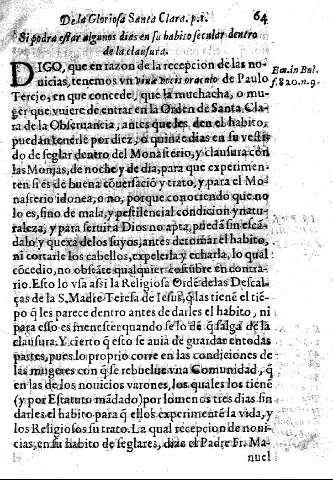 De la Gloriosa Santa Clara. p.i. 64
Si podra estar algunos dias en su habito secular dentro
de la clausura.
DIGO, que en razon de la recepcion de las no-
uicias, tenemos vn viuæ vocis oraculo de Paulo
Tercio, en que concede, que la muchacha, o mu-
ger que vuiere de entrar en la Orden de Santa Cla-
ra de la Obseruancia, antes que les den el habito,
puedan tenerle por diez, o quinze dias en su vesti-
do de seglar dentro del Monasterio, y clausura con
las Monjas, de noche y de dia, para que experimen-
ten si es de buena cõuersaciõ y trato, y para el Mo-
nasterio idonea, o no, porque conociendo que no
lo es, sino de mala, y pestilencial condicion y natu-
raleza, y para seruir a Dios no apta, pueda sin escã-
dalo y quexa de los suyos, antes de tomar el habito,
ni cortarle los cabellos, expelerla y echarla, lo qual
cõcedio, no obstãte qualquier costũbre en contra-
rio. Esto lo vsa assi la Religiosa Ordẽ de las Descal-
ças de la S. Madre Teresa de Iesus, q̃ las tienẽ el tiẽ-
po q̃ les parece dentro antes de darles el habito, ni
para esso es menester quando se lo dẽ q̃ salga de la
clausura. Y cierto q̃ esto se auia de guardar en todas
partes, pues lo proprio corre en las condiciones de
las mugeres con q̃ se rebuelue vna Comunidad, q̃
en las de los nouicios varones, los quales los tienẽ
(y por Estatuto mãdado) por lo menos tres dias sin
darles el habito para q̃ ellos experimentẽ la vida, y
los Religiosos su trato. La qual recepcion de noui-
cias, en su habito de seglares, dize el Padre Fr. Ma-
nuel
Ex. in Bul.
f. 820. n. 9.